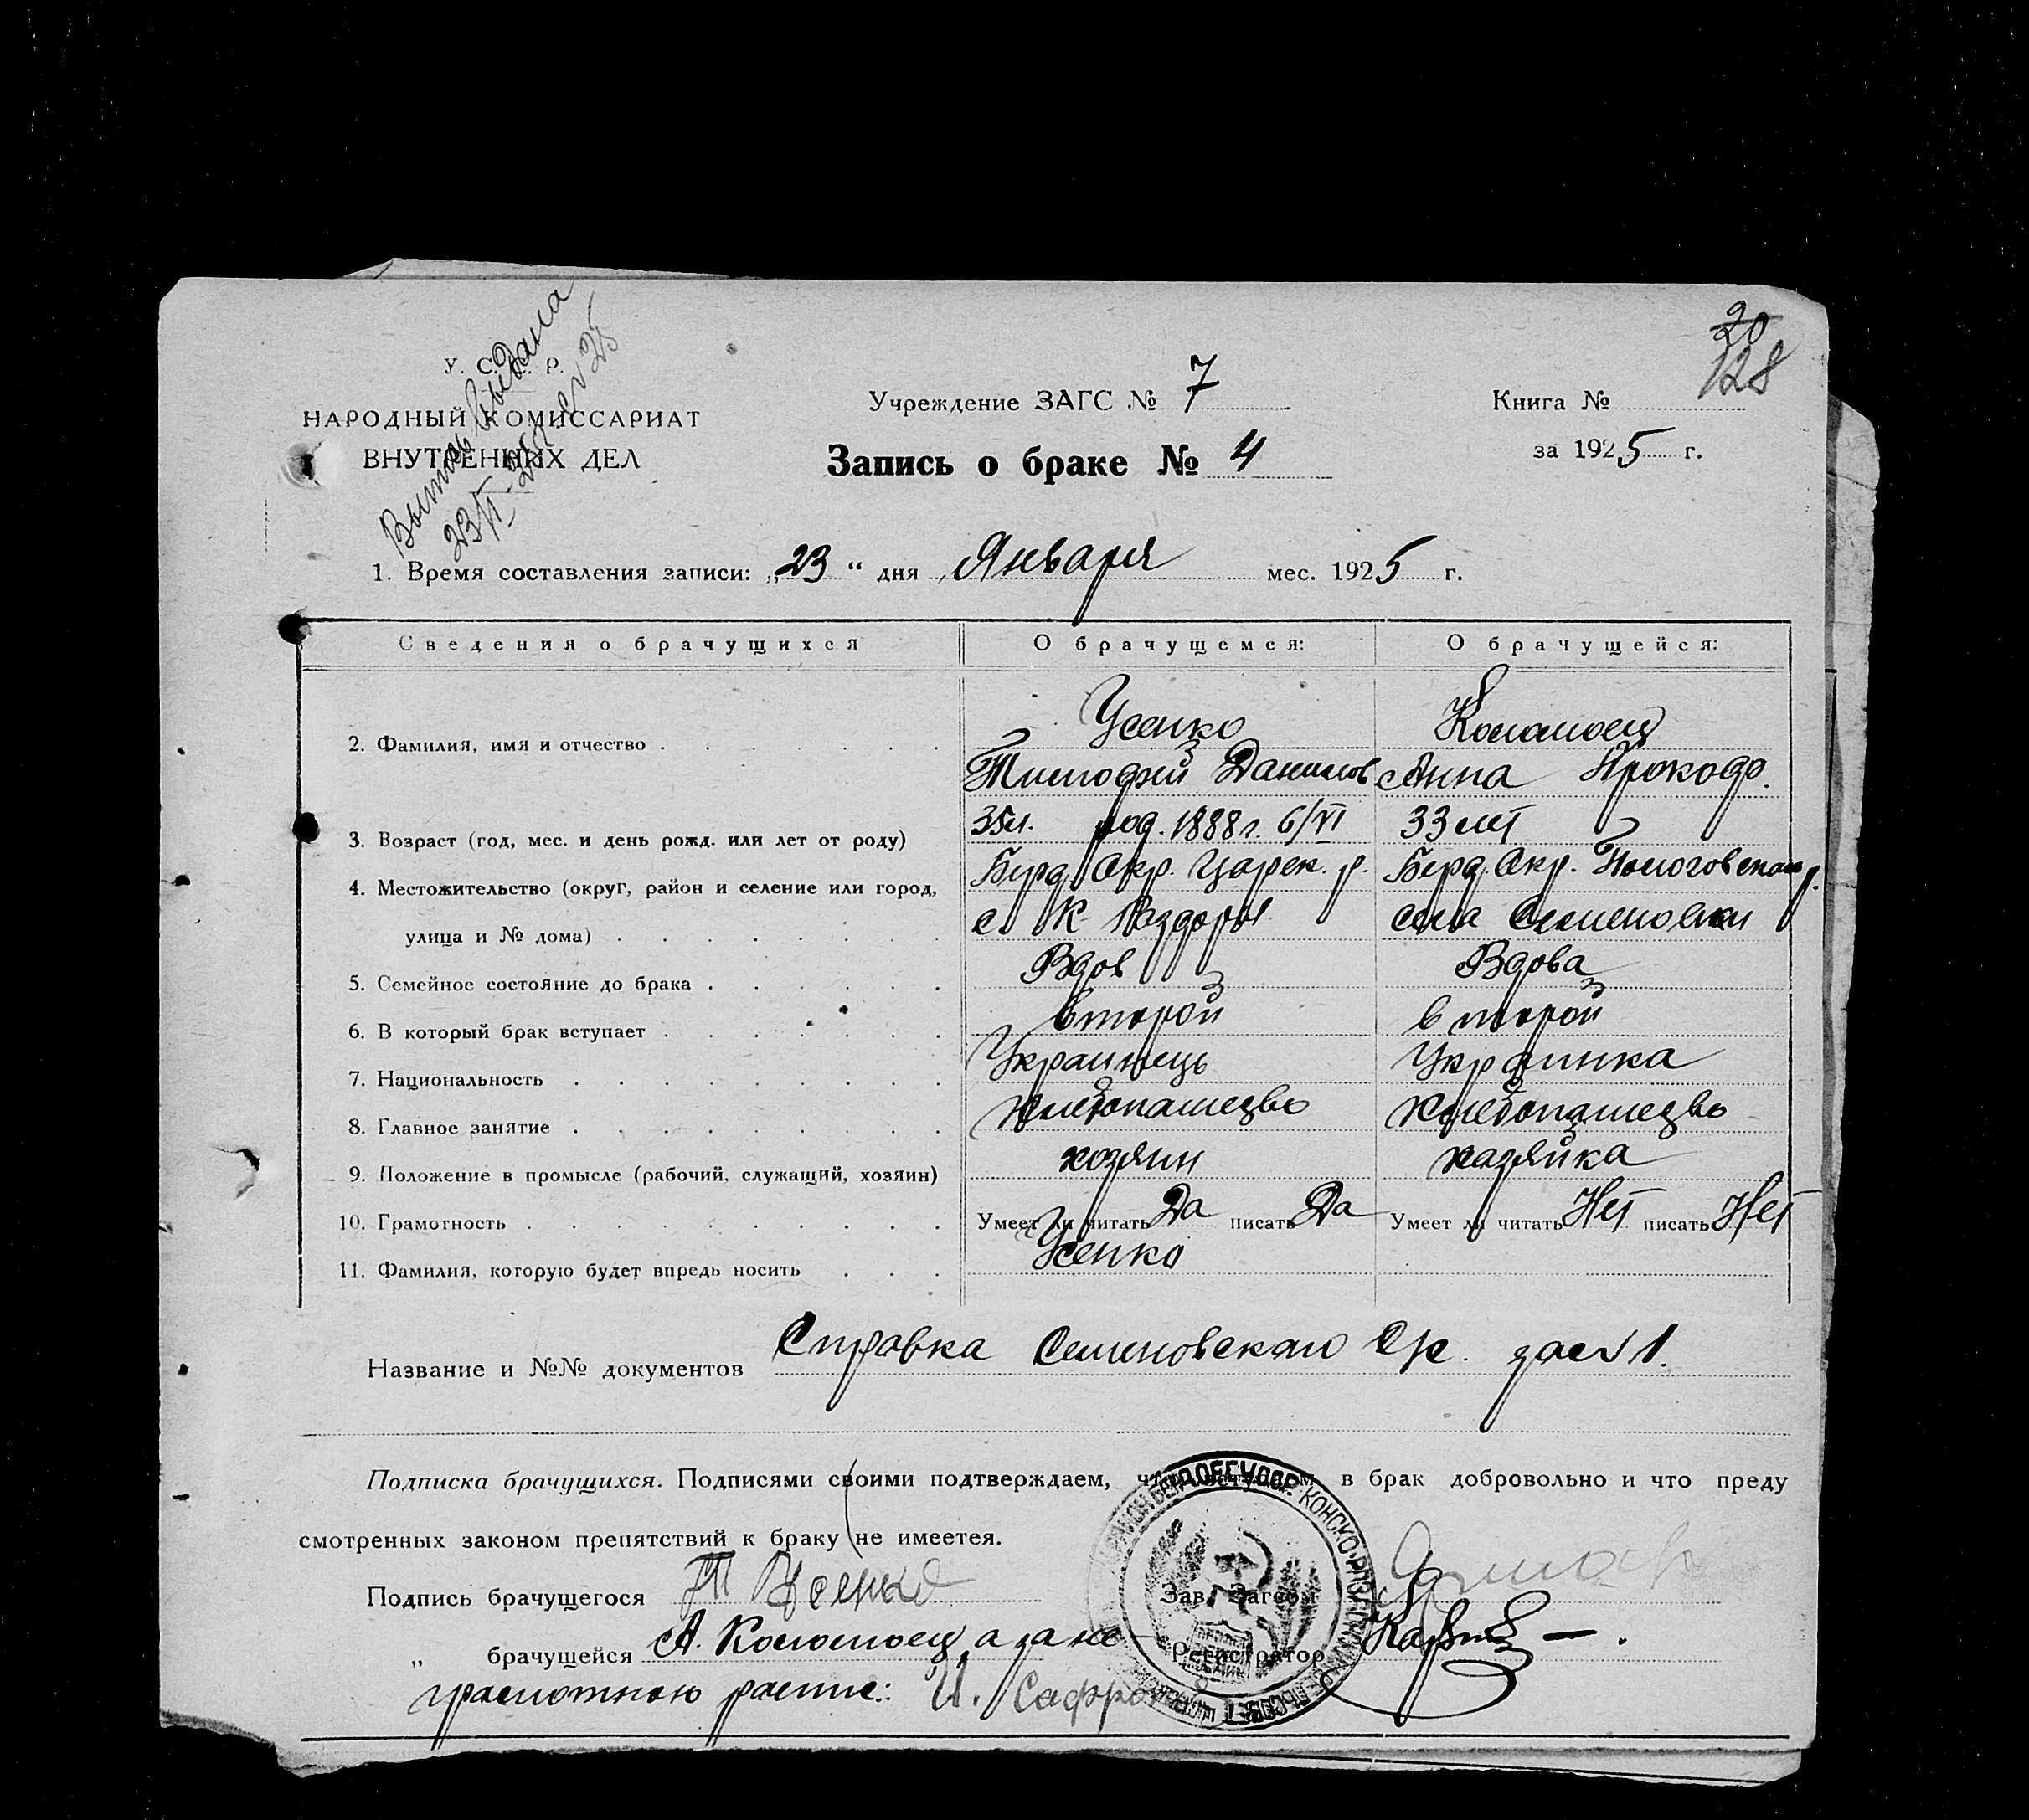 20
128
У. С. С. Р.
НАРОДНЫЙ КОМИССАРИАТ
ВНУТРЕННИХ ДЕЛ
Выпись выдана
23/VI-25
Учреждение ЗАГС № 7
Запись о браке № 4
Книга №
за 1925 г.
1. Время составления записи: „23“ дня Января мес. 1925 г.
Сведения о брачущихся О брачущемся: О брачущейся:
2. Фамилия, имя и отчество Усенко Коломоец
Тимофей Данилов Анна Прокоф.
3. Возраст (год, мес. и день рожд. или лет от роду) 35л. род. 1888 г. 6/VI 33 лет
4. Местожительство (округ, район и селение или город, Берд. Окр. Царек. р. Берд. Окр. Пологовского р.
улица и № дома) с. К Раздоры села Семеновки
5. Семейное состояние до брака Вдов Вдова
6. В который брак вступает второй второй
7. Национальность Украинець Украинка
8. Главное занятие Хлебопашедво Хлебопашедво
9. Положение в промысле (рабочий, служащий, хозяин) хозяин хазяйка
10. Грамотность Умеет ли читать Да писать Да Умеет ли читать Нет писать Нет
11. Фамилия, которую будет впредь носить Усенко
Название и №№ документов Справка Семеновскаго за № 1.
Подписка брачущихся. Подписями своими подтверждаем, что вступаем в брак добровольно и что преду
смотренных законом препятствий к браку не имеется.
Подпись брачущегося Т Усенко Зав. Загсом
„ брачущейся А. Коломоец а за не Регистратор
грамотною распис.: И. Сафро
КОНСКО-РАЗДОРСКИЙ СЕЛЬСОВЕТ